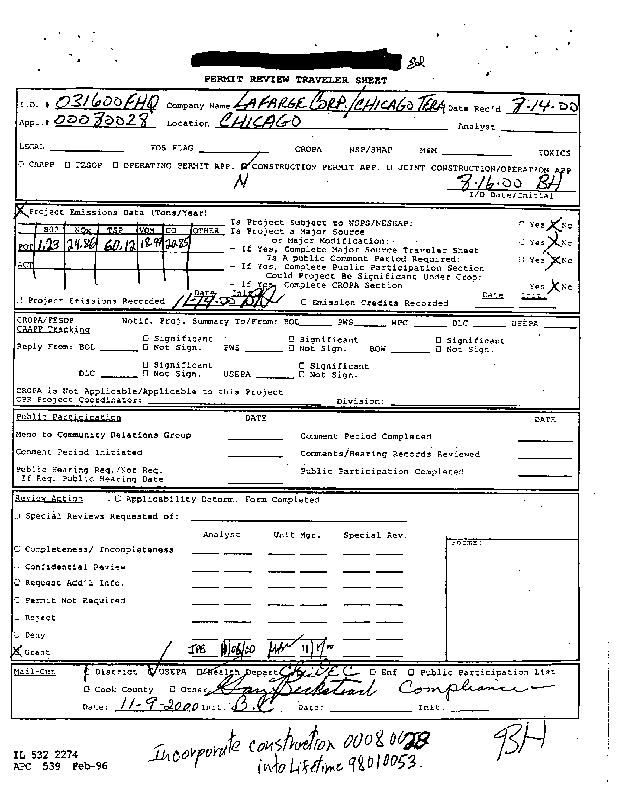 PERMIT REVIEW TRAVELER SHEET
I.D. # 031600FHQ Company Name LAFARGE CORP./CHICAGO TERM Date Rec'd 8-14-00
Appl.# 00080028 Location CHICAGO Analyst
LEGAL FOS FLAG CROPA NSP/SHAP M&M TOXICS
CAAPP FESOP OPERATING PERMIT APP. CONSTRUCTION PERMIT APP. JOINT CONSTRUCTION/OPERATION APP
N 8-16-00 BH
I/O Date/Initial
Project Emissions Data (Tons/Year)
SO2 NOx TSP VOM CO OTHER
POT 1.23 24.86 60.12 18.99 20.85
ACT
Is Project Subject to NSPS/NESHAP: Yes No
Is Project a Major Source
or Major Modification: Yes No
- If Yes, Complete Major Source Traveler Sheet
Is A Public Comment Period Required: Yes No
- If Yes, Complete Public Participation Section
Could Project Be Significant Under Crop:
- If Yes, Complete CROPA Section Yes No
Project Emissions Recorded Date Init. Emission Credits Recorded Date Init.
CROPA/FESOP Notif. Proj. Summary To/From: BOL PWS WPC DLC USEPA
CAAPP Tracking
Significant Significant Significant
Reply From: BOL Not Sign. PWS Not Sign. BOW Not Sign.
Significant Significant
DLC Not Sign. USEPA Not Sign.
CROPA is Not Applicable/Applicable to this Project
CPR Project Coordinator: Division:
Public Participation DATE DATE
Memo to Community Relations Group Comment Period Completed
Comment Period Initiated Comments/Hearing Records Reviewed
Public Hearing Req./Not Req. Public Participation Completed
If Req. Public Hearing Date
Review Action Applicability Determ. Form Completed
Special Reviews Requested of:
Analyst Unit Mgr. Special Rev.
Completeness/ Incompleteness
Confidential Review
Request Add'l Info.
Permit Not Required
Reject
Deny
Grant
Mail-Out District USEPA Health Depart Enf Public Participation List
Cook County Other Dan Beckstead Compliance
Date: 11-9-2000 Init. B.C Date: Init.
Incorporate construction 00080028
into Lifetime 98010053.
BH
IL 532 2274
APC 539 Feb-96